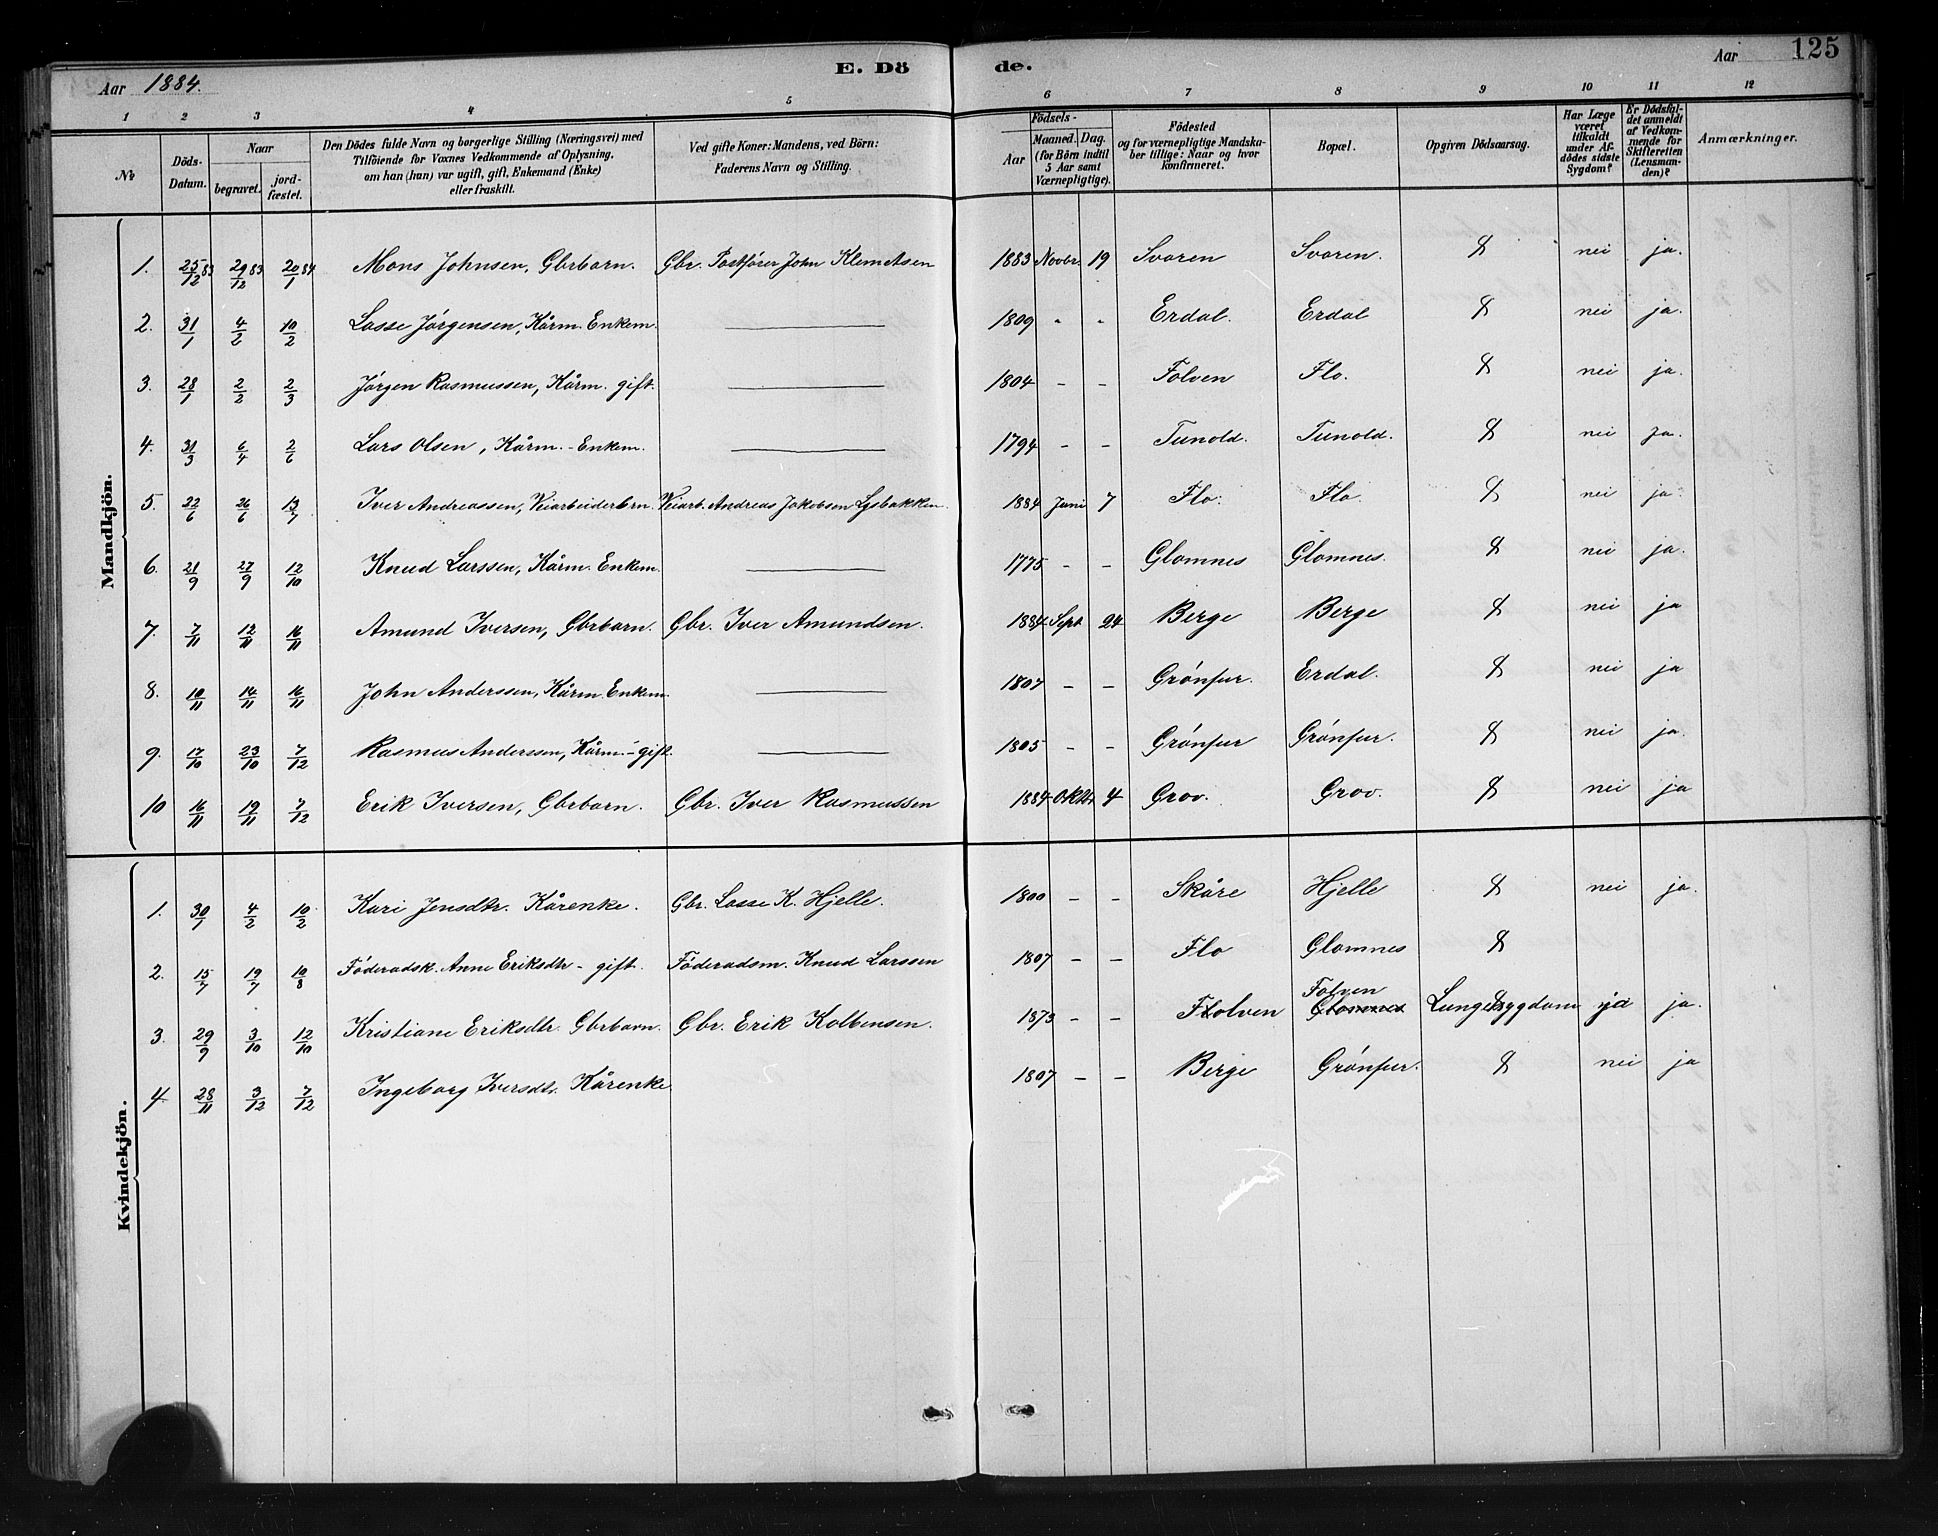 Aar 1884. E. Dö de. Aar 125
1 2 3 4 5 6 7 8 9 10 11 12
No Döds-Datum. Naar begravet. jord-fæstet. Den Dödes fulde Navn og borgerlige Stilling (Næringsvei) med Tilföiende for Voxnes Vedkommende af Oplysning, om han (hun) var ugift, gift, Enkemand (Enke) eller fraskilt. Ved gifte Koner: Mandens, ved Börn: Faderens Navn og Stilling. Födsels- Aar Maaned. Dag. (for Börn indtil 5 Aar samt Værnepligtige). Födested og for værnepligtige Mandska-ber tillige: Naar og hvor konfirmeret. Bopæl. Opgiven Dödsaarsag. Har Læge været tilkaldt under Af-dödes sidste Sygdom? Er Dödsfal-det anmeldt af Vedkom-mende for Skifteretten (Lensman-den)? Anmærkninger.
Mandkjön.
1. 25/12 83 29/12 83 20/1 84 Mons Johnsen, Gbrbarn. Gbr. Postfører John Klem Aasen 1883 Novbr. 19 Svoren Svoren. nei ja.
2. 31/1 4/2 10/2 Lasse Jørgensen, Kårm. Enkem. — 1809 - - Erdal. Erdal nei ja.
3. 28/1 2/2 2/3 Jørgen Rasmussen, Kårm. gift. — 1804 - - Folven Flo. nei ja.
4. 31/3 6/4 2/6 Lars Olsen, Kårm. - Enkem. — 1794 - - Tunold. Tunold. nei ja.
5. 22/6 26/6 13/7 Iver Andreassen, Veiarbeiderbrn. Veiarb. Andreas Jakobsen Lysbakken. 1884 Juni 7 Flo. Flo. nei ja.
6. 21/9 27/9 12/10 Knud Larssen, Kårm. Enkem. — 1775 - - Glomnes Glomnes. nei ja.
7. 7/11 12/11 16/11 Amund Iversen, Gbrbarn. Gbr. Iver Amundsen. 1884 Sept. 24 Berge Berge nei ja
8. 10/11 14/11 16/11 John Anderssen, Kårm. Enkem. — 1807 - - Grönfur. Erdal. nei ja
9. 17/10 23/10 7/12 Rasmus Anderssen, Kårm. - gift. — 1805 - - Grönfur Grönfur. nei ja.
10 16/11 19/11 7/12 Erik Iversen, Gbrbarn. Gbr. Iver Rasmussen 1884 Oktbr. 4 Grov. Grov. nei ja
Kvindekjön.
1. 4/2 10/2 Kari Jensdtr. Kårenke. Gbr. Lasse K. Hjelle. 1800 - - Skåre Hjelle nei ja.
2. 15/7 19/7 10/8 Föderadsk. Anne Eriksdtr - gift. Föderadsm. Knud Larssen 1807 - - Flo Glomnes
3. 29/9 3/10 12/10 Kristiane Eriksdtr. Gbrbarn. Gbr. Erik Kolbensen. 1873 - - Folven Folven Glomnes Lungesygdom ja ja.
4. 28/11 3/12 7/12 Ingeborg Iversdtr. Kårenke 1807 - - Berge Grönfur. nei ja